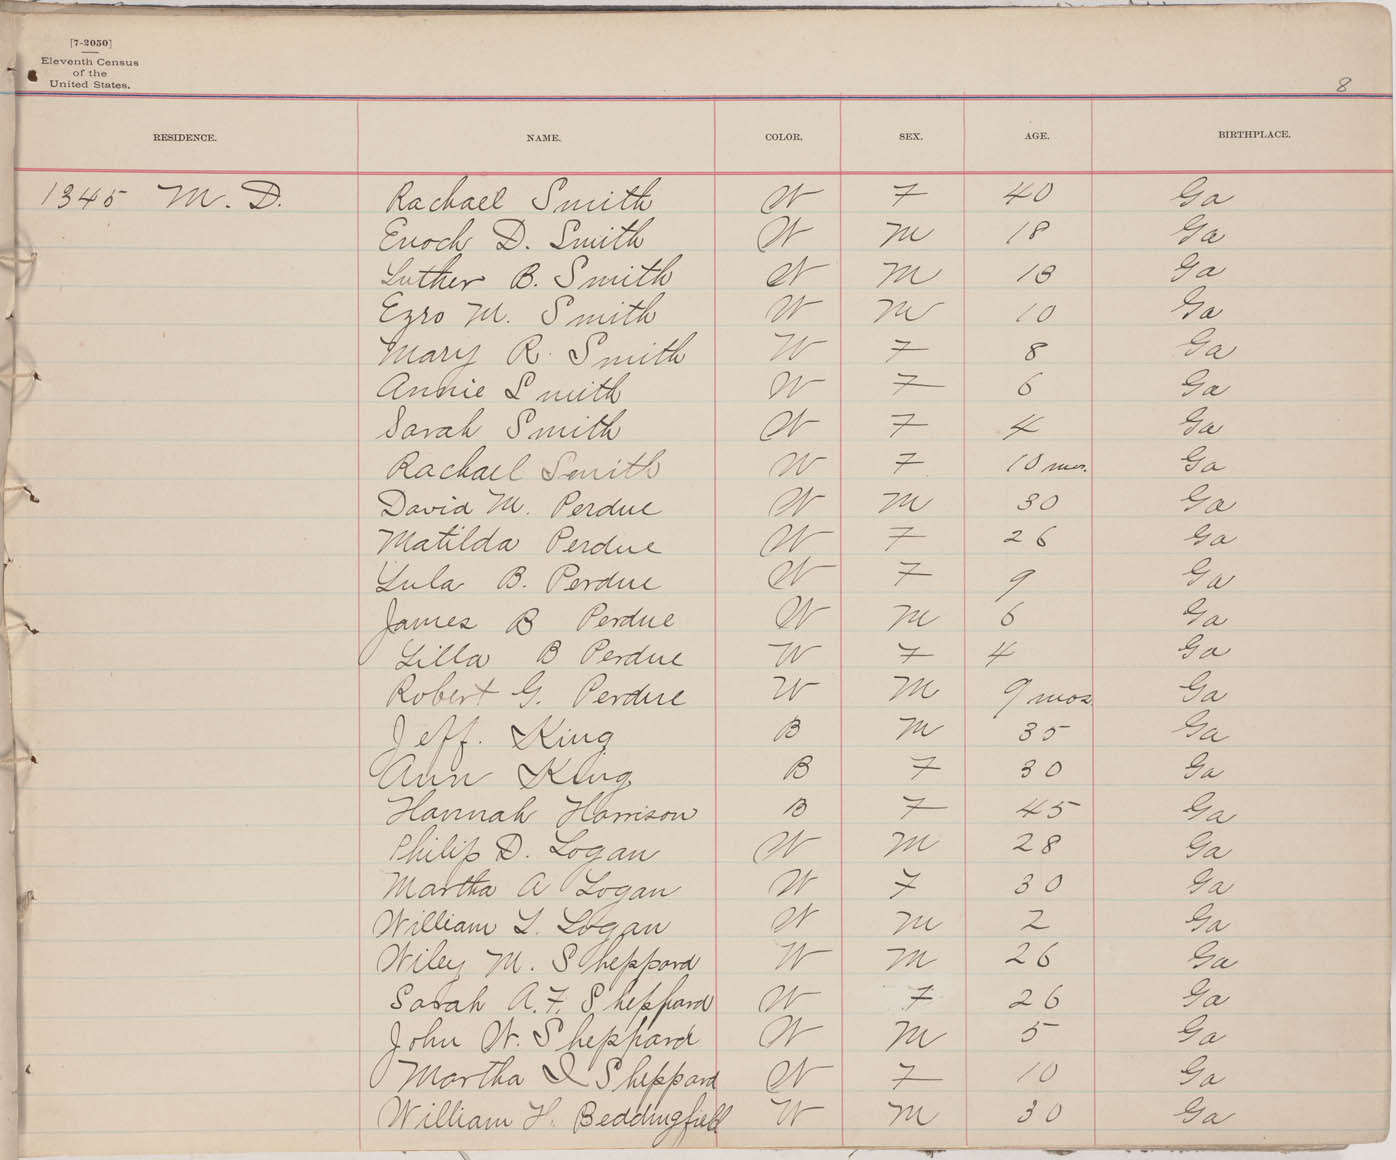 [7-2050]
Eleventh Census
of the
United States.
8
RESIDENCE. NAME. COLOR. SEX. AGE. BIRTHPLACE.
1345 M. D. Rachael Smith W F 40 Ga
Enoch D. Smith W M 18 Ga
Luther B. Smith W M 13 Ga
Ezro M. Smith W M 10 Ga
Mary R. Smith W F 8 Ga
Annie Smith W F 6 Ga
Sarah Smith W F 4 Ga
Rachael Smith W F 10 mos. Ga
David M. Perdue W M 30 Ga
Matilda Perdue W F 26 Ga
Lula B. Perdue W F 9 Ga
James B Perdue W M 6 Ga
Lilla B Perdue W F 4 Ga
Robert G. Perdue W M 9 mos. Ga
Jeff. King B M 35 Ga
Ann King B F 30 Ga
Hannah Harrison B F 45 Ga
Philip D. Logan W M 28 Ga
Martha A Logan W F 30 Ga
William L. Logan W M 2 Ga
Wiley M. Sheppard W M 26 Ga
Sarah A. F. Sheppard W F 26 Ga
John W. Sheppard W M 5 Ga
Martha I Sheppard W F 10 Ga
William H. Beddingfield W M 30 Ga